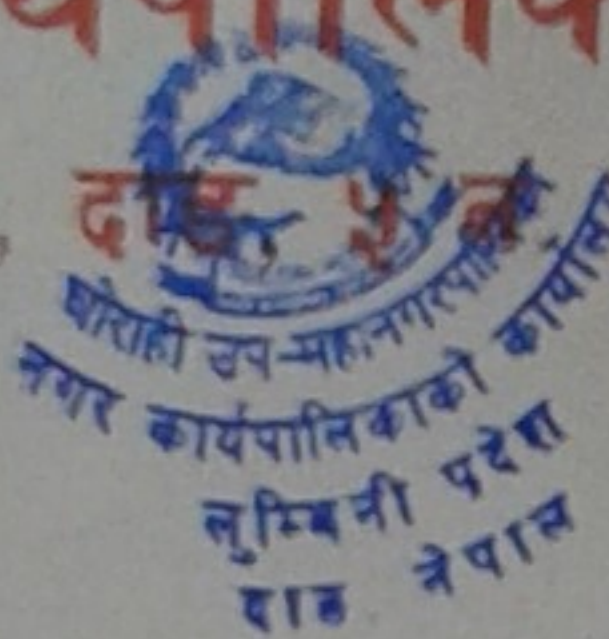 दाङ, ने
घोराही उप-महानगरपालिका
नगर कार्यपालिकाको कार्यालय
लुम्बिनी प्रदेश
दाङ नेपाल